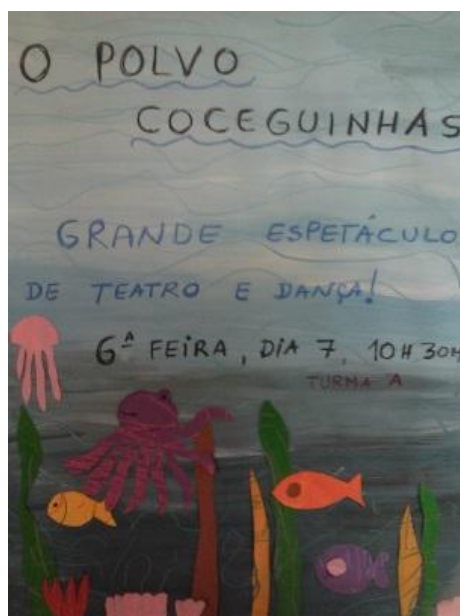 O POLVO
COCEGUINHAS
GRANDE ESPETÁCULO
DE TEATRO E DANÇA!
6ª FEIRA, DIA 7, 10H30H
TURMA A